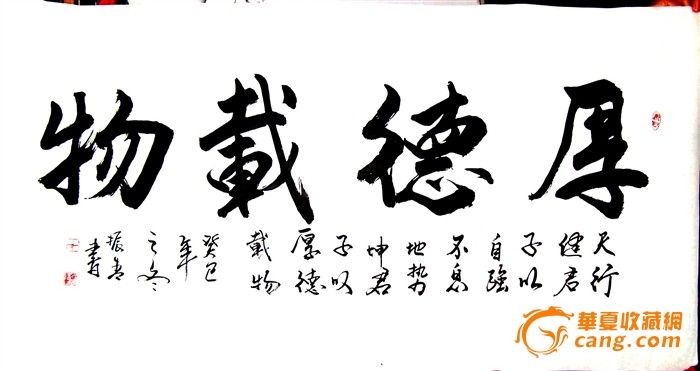 厚德載物
天行
健君
子以
自强
不息
地势
坤君
子以
厚德
載物
癸巳
年
之冬
振
書
華夏收藏網
cang.com